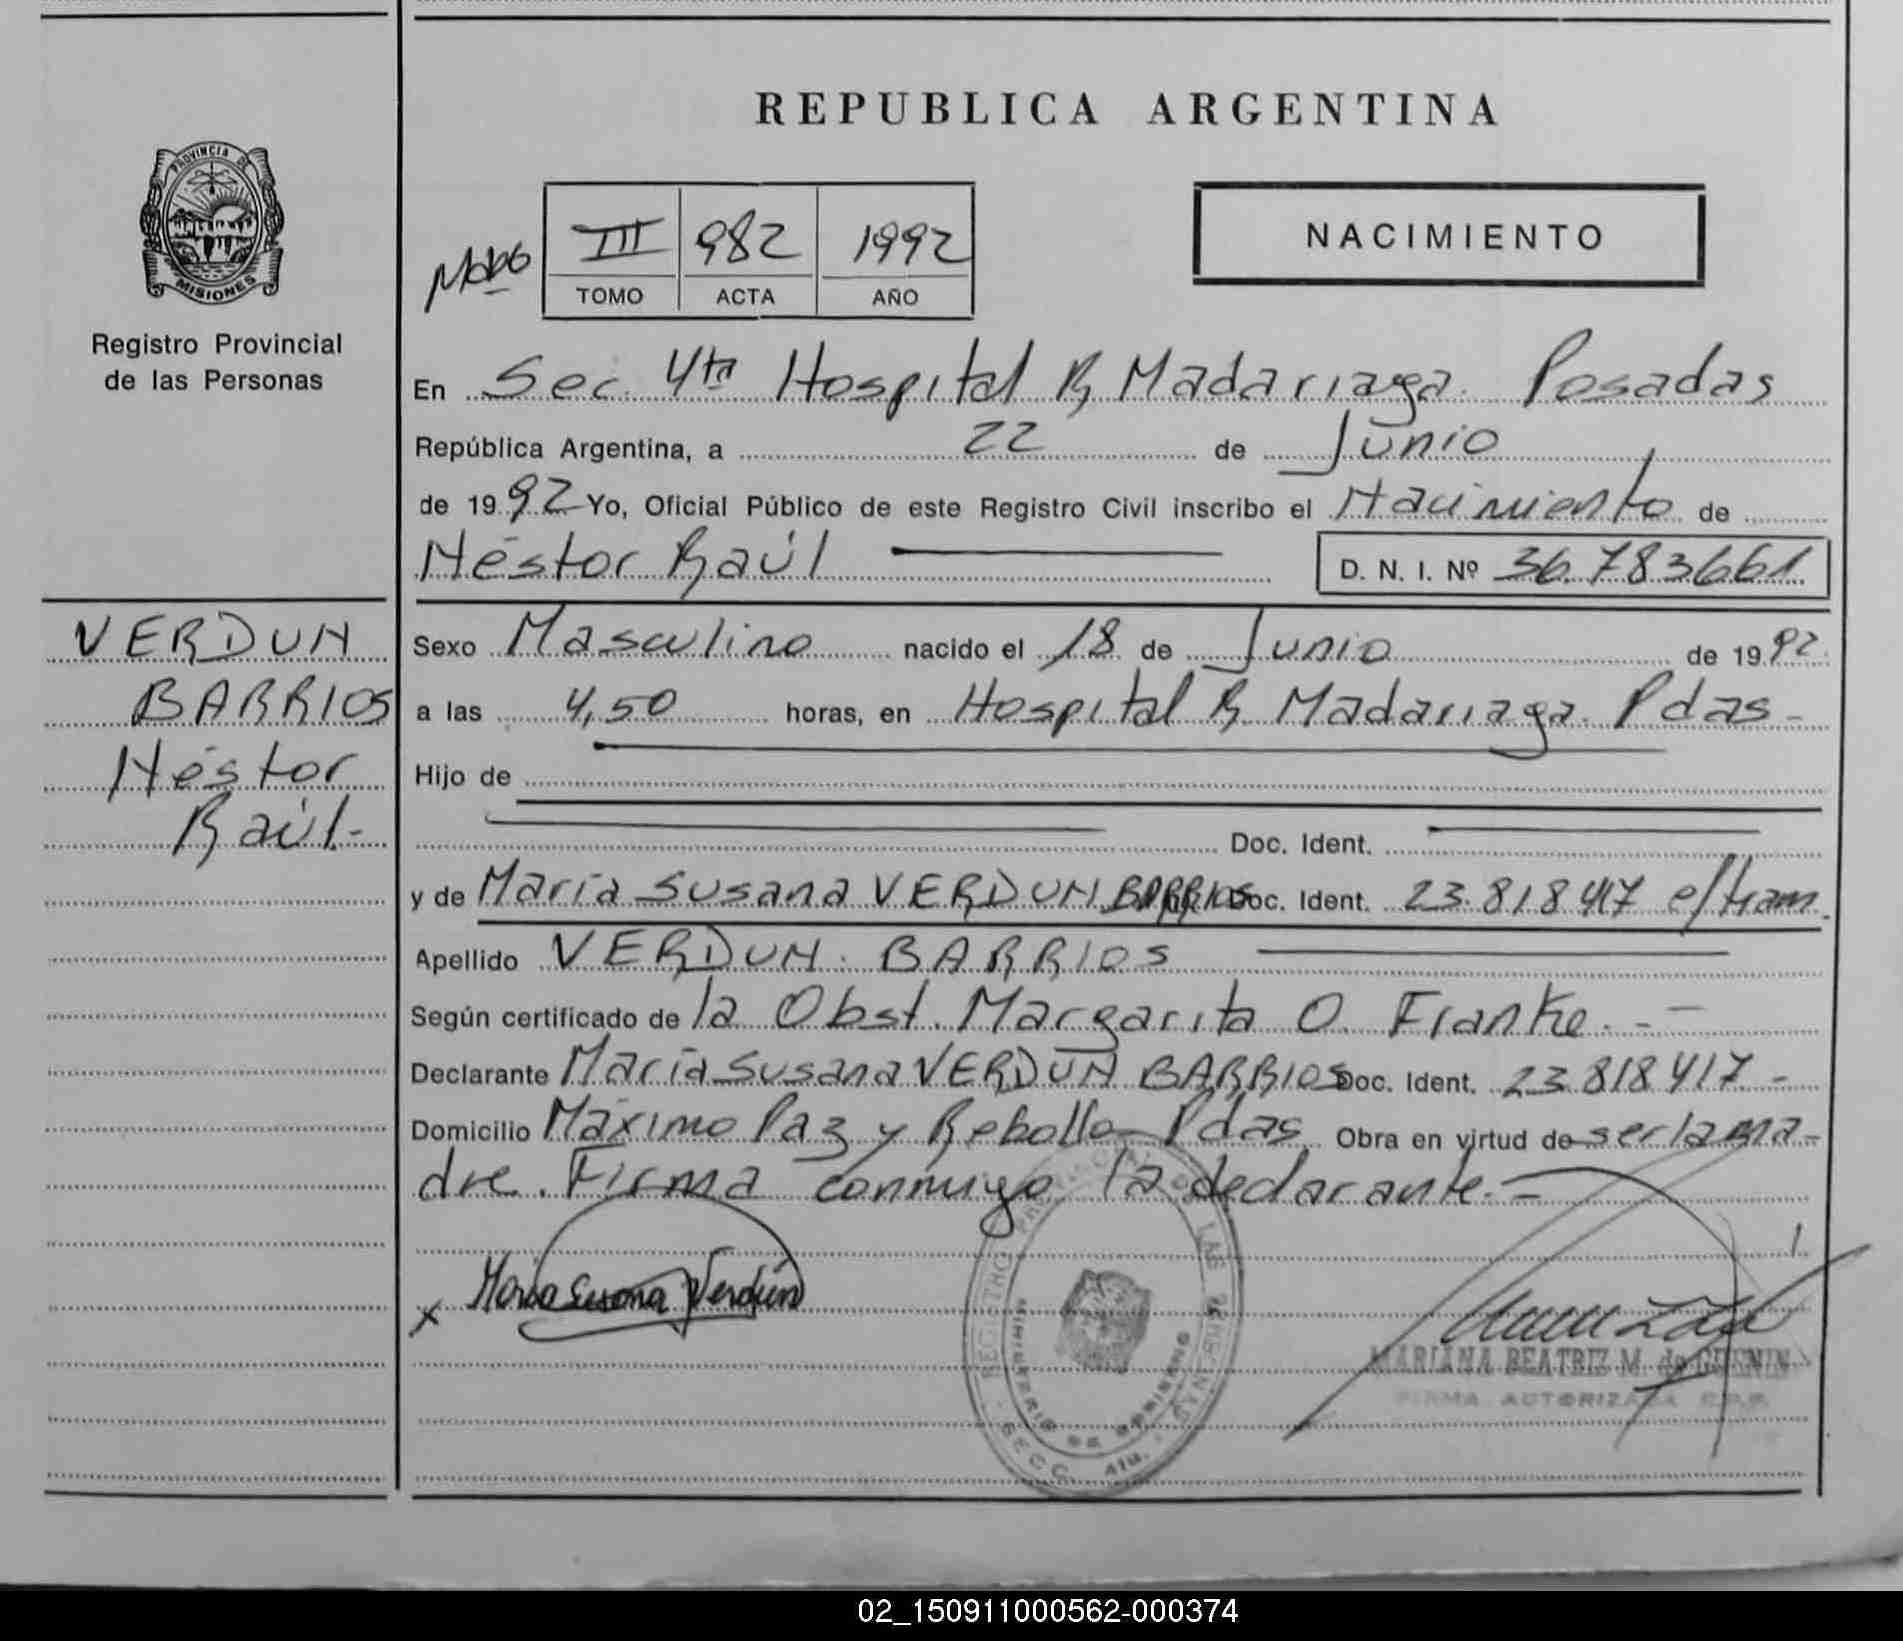 REPUBLICA ARGENTINA
PROVINCIA DE
MISIONES
Registro Provincial
de las Personas
III 982 1992
TOMO ACTA AÑO
NACIMIENTO
En Sec. 4ta Hospital R. Madariaga. Posadas
República Argentina, a 22 de Junio
de 1992 Yo, Oficial Público de este Registro Civil inscribo el Nacimiento de
Néstor Raúl D. N. I. Nº 36.783661
VERDUN
BARRIOS
Néstor
Raúl.-
Sexo Masculino nacido el 18 de Junio de 1992
a las 4,50 horas, en Hospital R. Madariaga. Pdas-
Hijo de
Doc. Ident.
y de María Susana VERDUN BARRIOS Doc. Ident. 23.818417 e/tram.
Apellido VERDUN. BARRIOS
Según certificado de la Obst. Margarita O. Franke.--
Declarante María Susana VERDUN BARRIOS Doc. Ident. 23.818417-
Domicilio Máximo Paz y Rebollo Pdas. Obra en virtud de ser la ma-
dre. Firma conmigo la declarante.-
x María Susana Verdún
REGISTRO PROVINCIAL DE LAS PERSONAS
MINISTERIO DE GOBIERNO
MARIANA BEATRIZ M. de
FIRMA AUTORIZADA R.P.P.
02_150911000562-000374